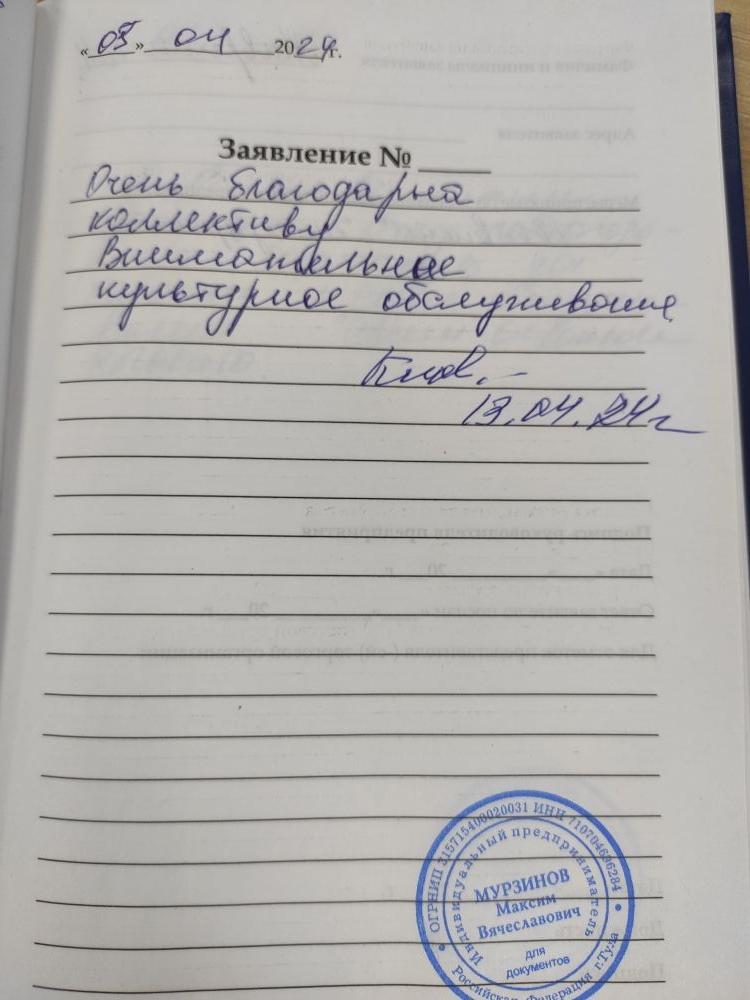 « 03 » 04 2024г.
Заявление № ____
Очень благодарна
коллективу
Внимательное
культурное обслуживание
13.04.24г
ОГРНИП 315715400020031 ИНН 710704696284
Индивидуальный предприниматель
МУРЗИНОВ
Максим
Вячеславович
для
документов
Российская Федерация г.Тула